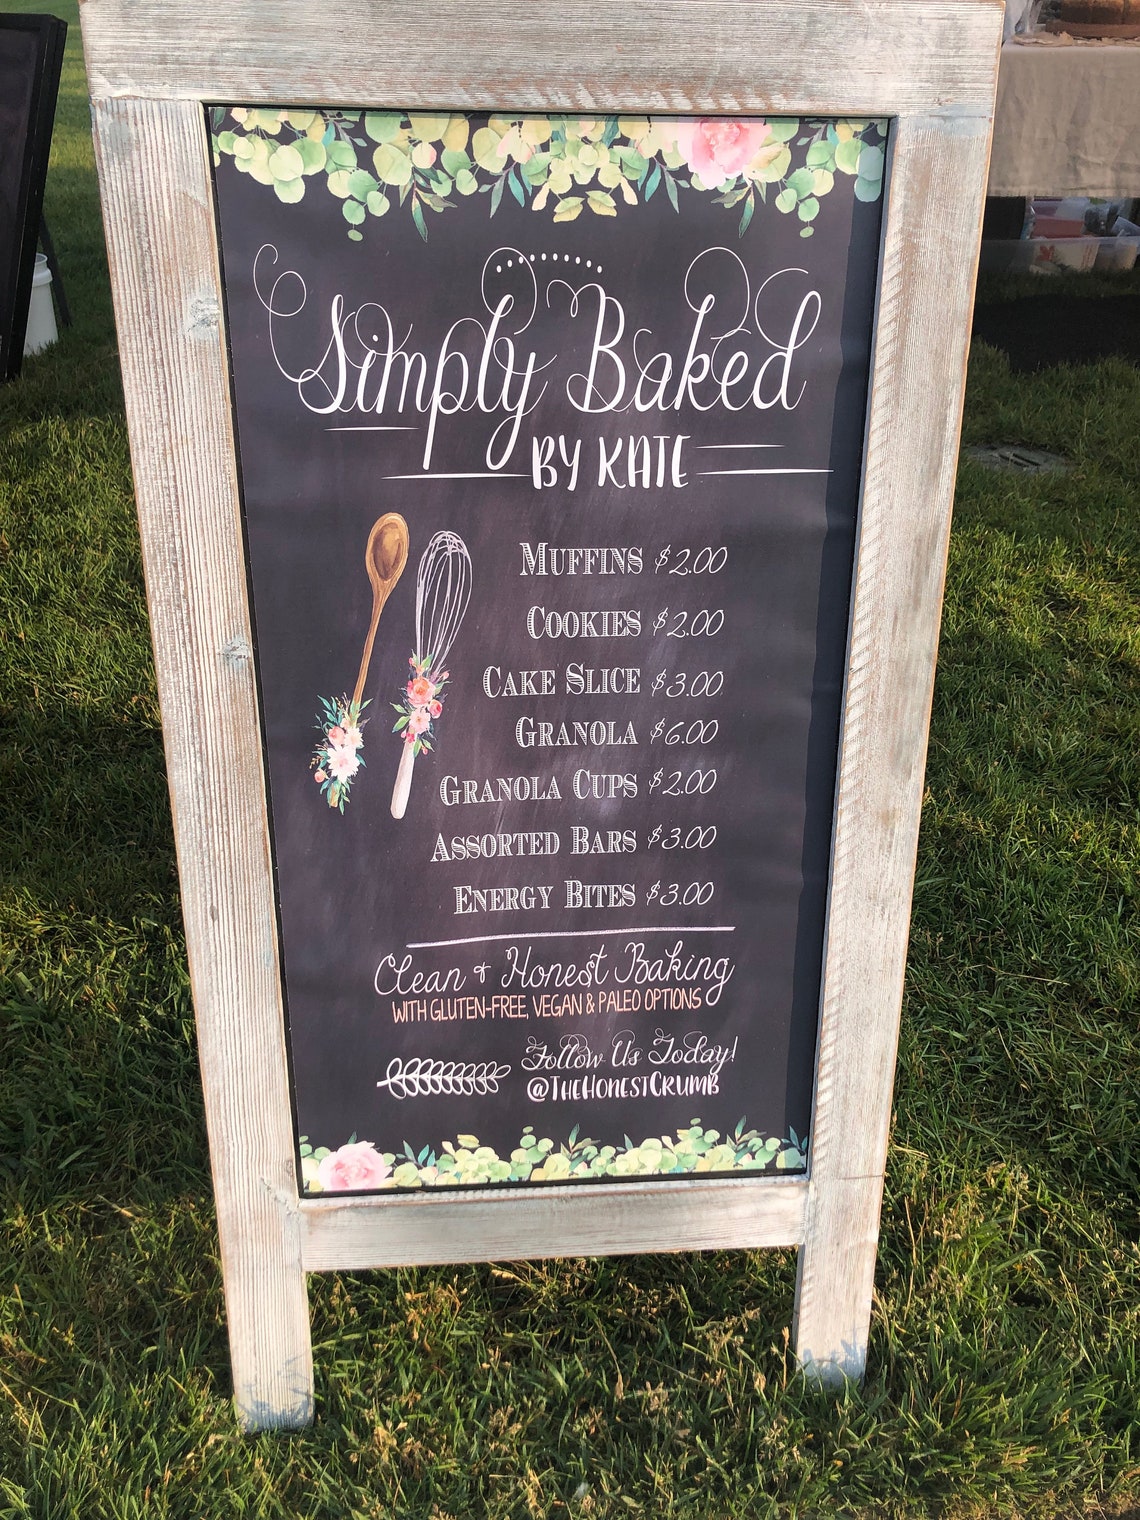 Simply Baked
BY KATE
MUFFINS $2.00
COOKIES $2.00
CAKE SLICE $3.00
GRANOLA $6.00
GRANOLA CUPS $2.00
ASSORTED BARS $3.00
ENERGY BITES $3.00
Clean + Honest Baking
WITH GLUTEN-FREE, VEGAN & PALEO OPTIONS
Follow Us Today!
@THEHONESTCRUMB